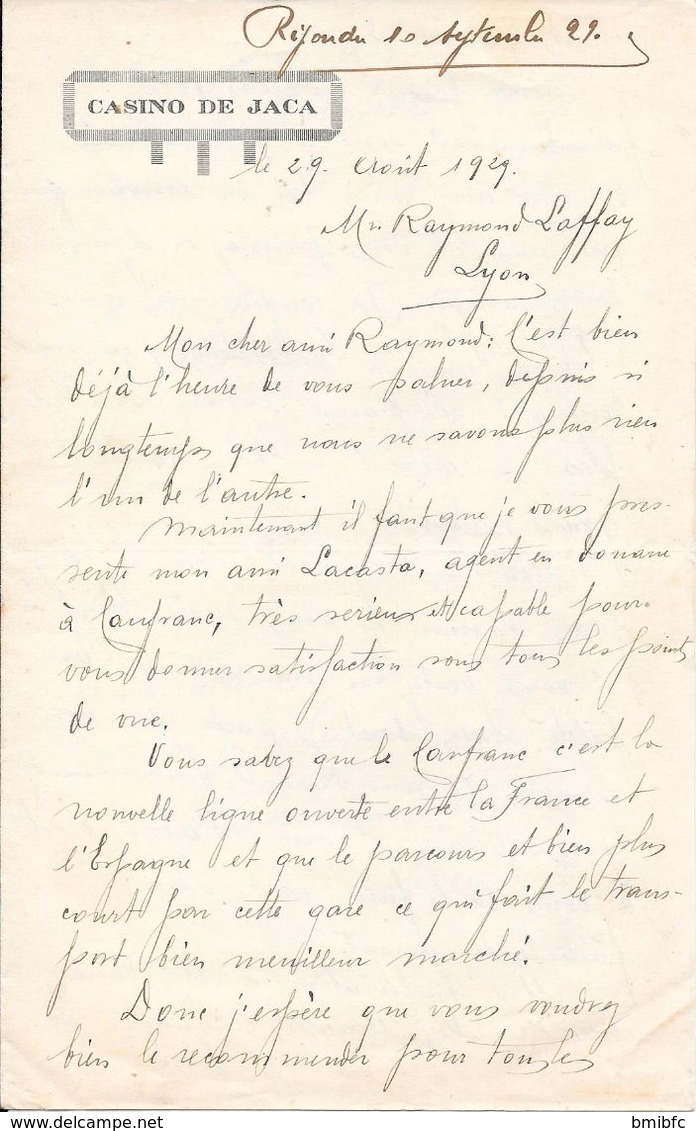 Répondu 10 Septembre 29.
CASINO DE JACA
le 29 Août 1929.
Mr. Raymond Laffay
Lyon
Mon cher ami Raymond: C'est bien
déjà l'heure de vous saluer, depuis si
longtemps que nous ne savons plus rien
l'un de l'autre.
Maintenant il faut que je vous pres-
sente mon ami Lacasta, agent en douane
à Canfranc, très serieux et capable pour
vous donner satisfaction sous tous les points
de vue.
Vous savez que le Canfranc c'est la
nouvelle ligne ouverte entre la France et
l'Espagne et que le parcours et bien plus
court par cette gare ce qui fait le trans-
port bien meuilleur marché.
Donc j'espère que vous voudrez
bien le recommender pour tous les
bmibfc